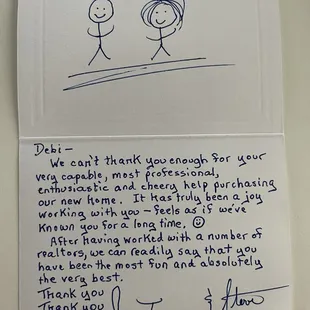 Debi —
We can't thank you enough for your
very capable, most professional,
enthusiastic and cheery help purchasing
our new home. It has truly been a joy
working with you — feels as if we've
known you for a long time. ☺
After having worked with a number of
realtors, we can readily say that you
have been the most fun and absolutely
the very best.
Thank you
Thank you
& Steve